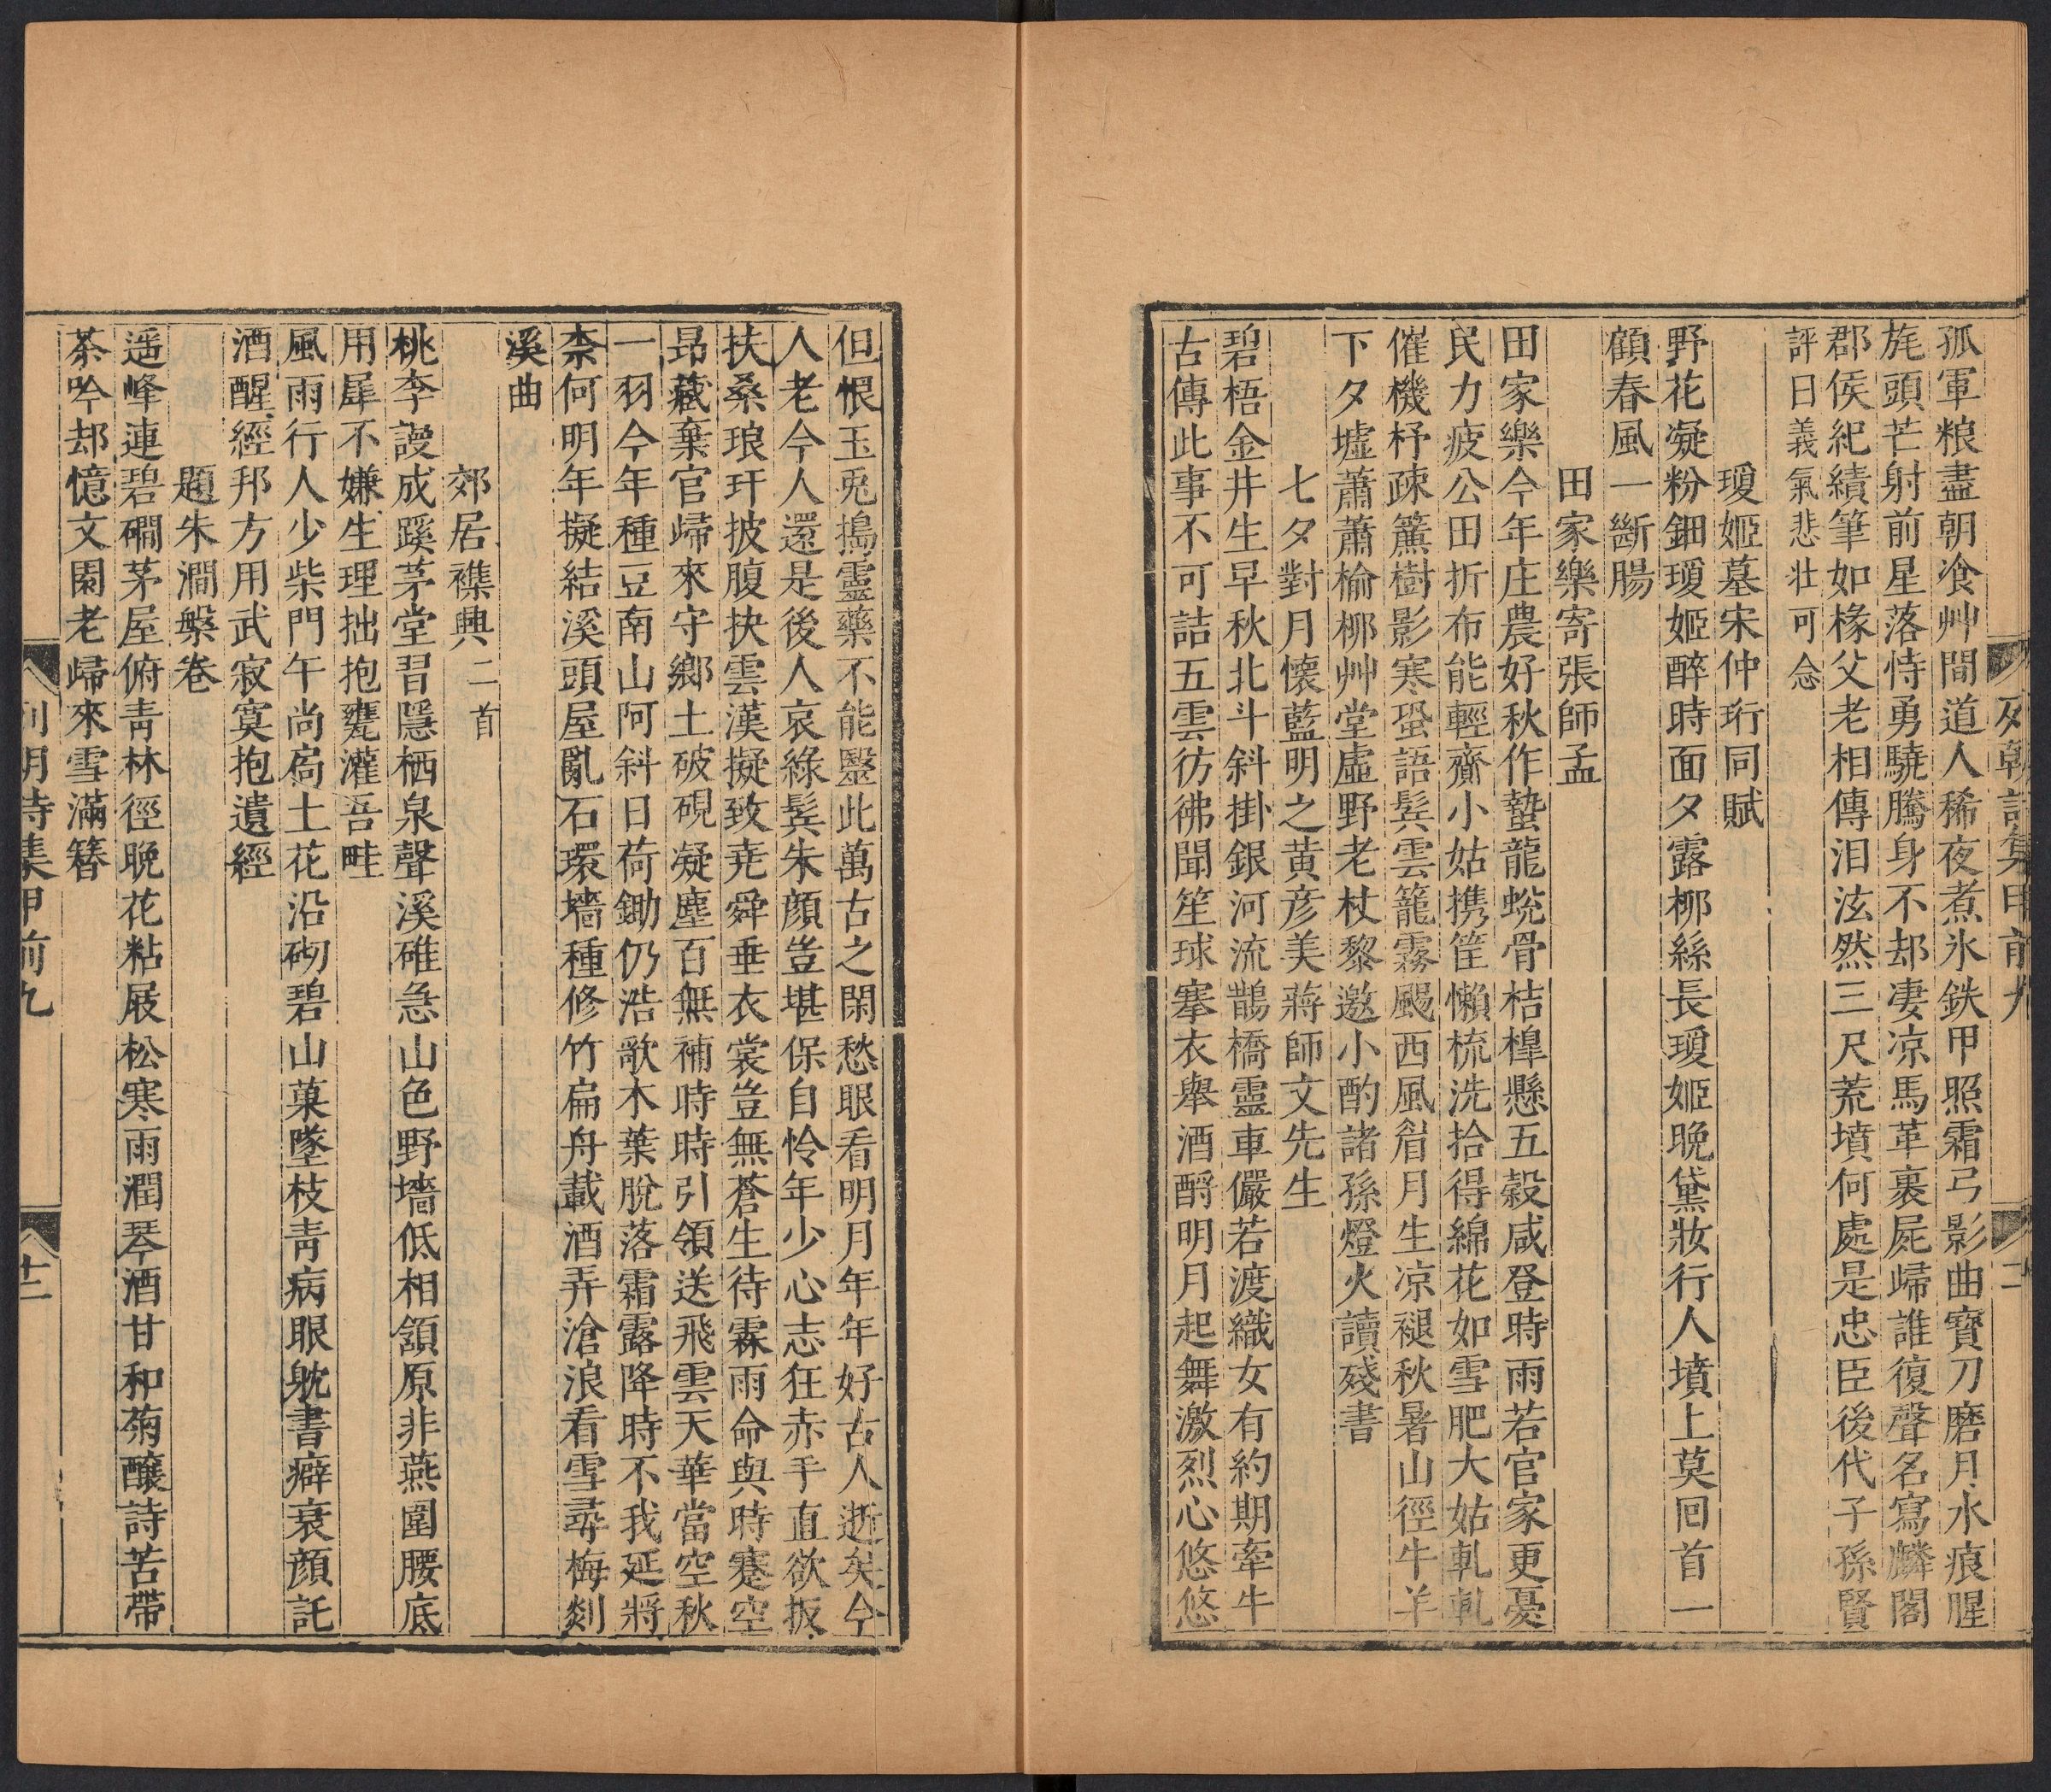 列朝詩集甲前九
二
孤軍粮盡朝飡艸間道人稀夜煮氷鉄甲照霜弓影曲寳刀磨月水痕腥
旄頭芒射前星落恃勇驍騰身不却凄凉馬革裹屍歸誰復聲名寫麟閣
郡侯紀績筆如椽父老相傳泪泫然三尺荒墳何處是忠臣後代子孫賢
評曰義氣悲壮可念
瓊姬墓宋仲珩同賦
野花凝粉鈿瓊姬醉時面夕露栁絲長瓊姬晚黛妝行人墳上莫囘首一
顧春風一斷腸
田家樂寄張師孟
田家樂今年庄農好秋作蟄龍蛻骨桔槹懸五穀咸登時雨若官家更憂
民力疲公田折布能輕齎小姑携筐懶梳洗拾得綿花如雪肥大姑軋軋
催機杼疎簾樹影寒蛩語髩雲籠霧颺西風眉月生凉褪秋暑山徑牛羊
下夕墟蕭蕭榆栁艸堂虛野老杖黎邀小酌諸孫燈火讀殘書
七夕對月懷藍明之黄彦美蔣師文先生
碧梧金井生早秋北斗斜掛銀河流鵲橋靈車儼若渡織女有約期牽牛
古傳此事不可詰五雲彷彿聞笙球搴衣舉酒酹明月起舞激烈心悠悠
但恨玉兎搗靈藥不能毉此萬古之閑愁眼看明月年年好古人逝矣今
人老今人還是後人哀綠髩朱顔豈堪保自怜年少心志狂赤手直欲扳
扶桑琅玕披腹抉雲漢擬致尭舜垂衣裳豈無蒼生待霖雨命與時蹇空
昂藏棄官歸來守鄉土破硯凝塵百無補時時引領送飛雲天華當空秋
一羽今年種豆南山阿斜日荷鋤仍浩歌木葉脫落霜露降時不我延將
柰何明年擬結溪頭屋亂石環墻種修竹扁舟載酒弄滄浪看雪尋梅剡
溪曲
郊居襍興二首
桃李謾成蹊茅堂習隱栖泉聲溪碓急山色野墻低相頷原非燕圍腰底
用犀不嫌生理拙抱甕灌吾畦
風雨行人少柴門午尚扃土花沿砌碧山菓墜枝靑病眼躭書癖衰顔託
酒醒經邦方用武寂寞抱遺經
題朱澗槃卷
遥峰連碧磵茅屋俯靑林徑晚花粘屐松寒雨潤琴酒甘和菊釀詩苦帶
茶吟却憶文園老歸來雪滿簪
列朝詩集甲前九
十二